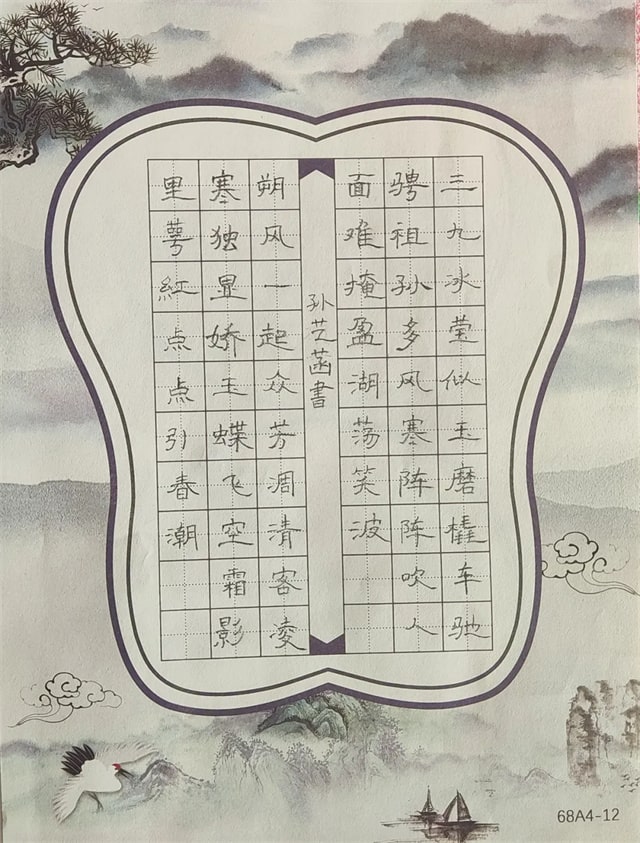 三九冰莹似玉磨橇车驰
骋祖孙多风寒阵阵吹人
面难掩盈湖荡笑波
孙艺菡書
朔风一起众芳凋清客凌
寒独显娇玉蝶飞空霜影
里萼紅点点引春潮
68A4-12